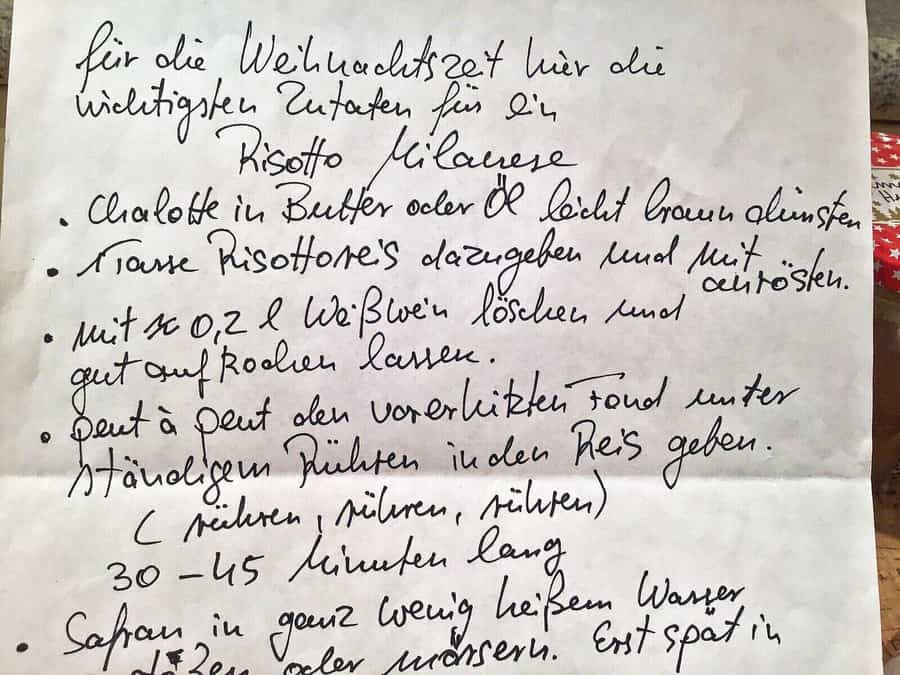 für die Weihnachtszeit hier die
wichtigsten Zutaten für ein
Risotto Milanese
• Chalotte in Butter oder Öl leicht braun dünsten
• 1 Tasse Risottoreis dazugeben und mit
anrösten.
• mit ≈ 0,2 l Weißwein löschen und
gut aufkochen lassen.
• peut à peut den vorerhitzten Fond unter
ständigem Rühren in den Reis geben.
( rühren, rühren, rühren)
30 – 45 Minuten lang
• Safran in ganz wenig heißem Wasser
oder mörsern. Erst spät in